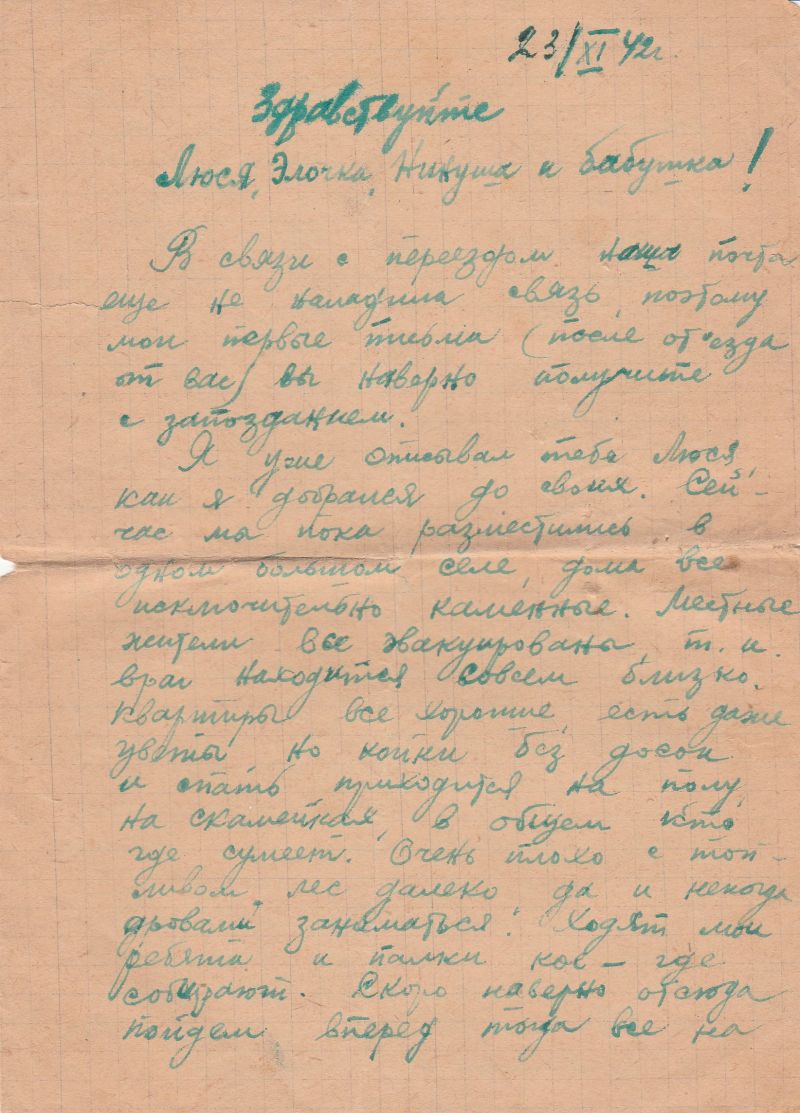 23/XI 42г.
Здравствуйте
Люся, Элочка, Никуша и бабушка!
В связи с переездом наша почта
еще не наладила связь, поэтому
мои первые письма (после от'езда
от вас) вы наверно получите
с запозданием.
Я уже описывал тебе Люся,
как я добрался до своих. Сей-
час мы пока разместились в
одном большом селе, дома все
исключительно каменные. Местные
жители все эвакуированы, т.к.
враг находится совсем близко.
Квартиры все хорошие, есть даже
цветы но койки без досок
и спать приходится на полу,
на скамейках, в общем кто
где сумеет. Очень плохо с топ-
ливом, лес далеко да и некогда
дровами заниматься. Ходят мои
ребята и палки кое-где
собирают. Скоро наверно отсюда
пойдем вперед тогда все на